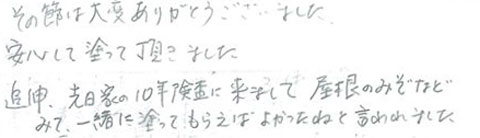 その節は大変ありがとうございました
安心して塗って頂きました
追伸、先日家の10年険査に来まして 屋根のみぞなど
みて、一緒に塗ってもらえばよかったねと言われました